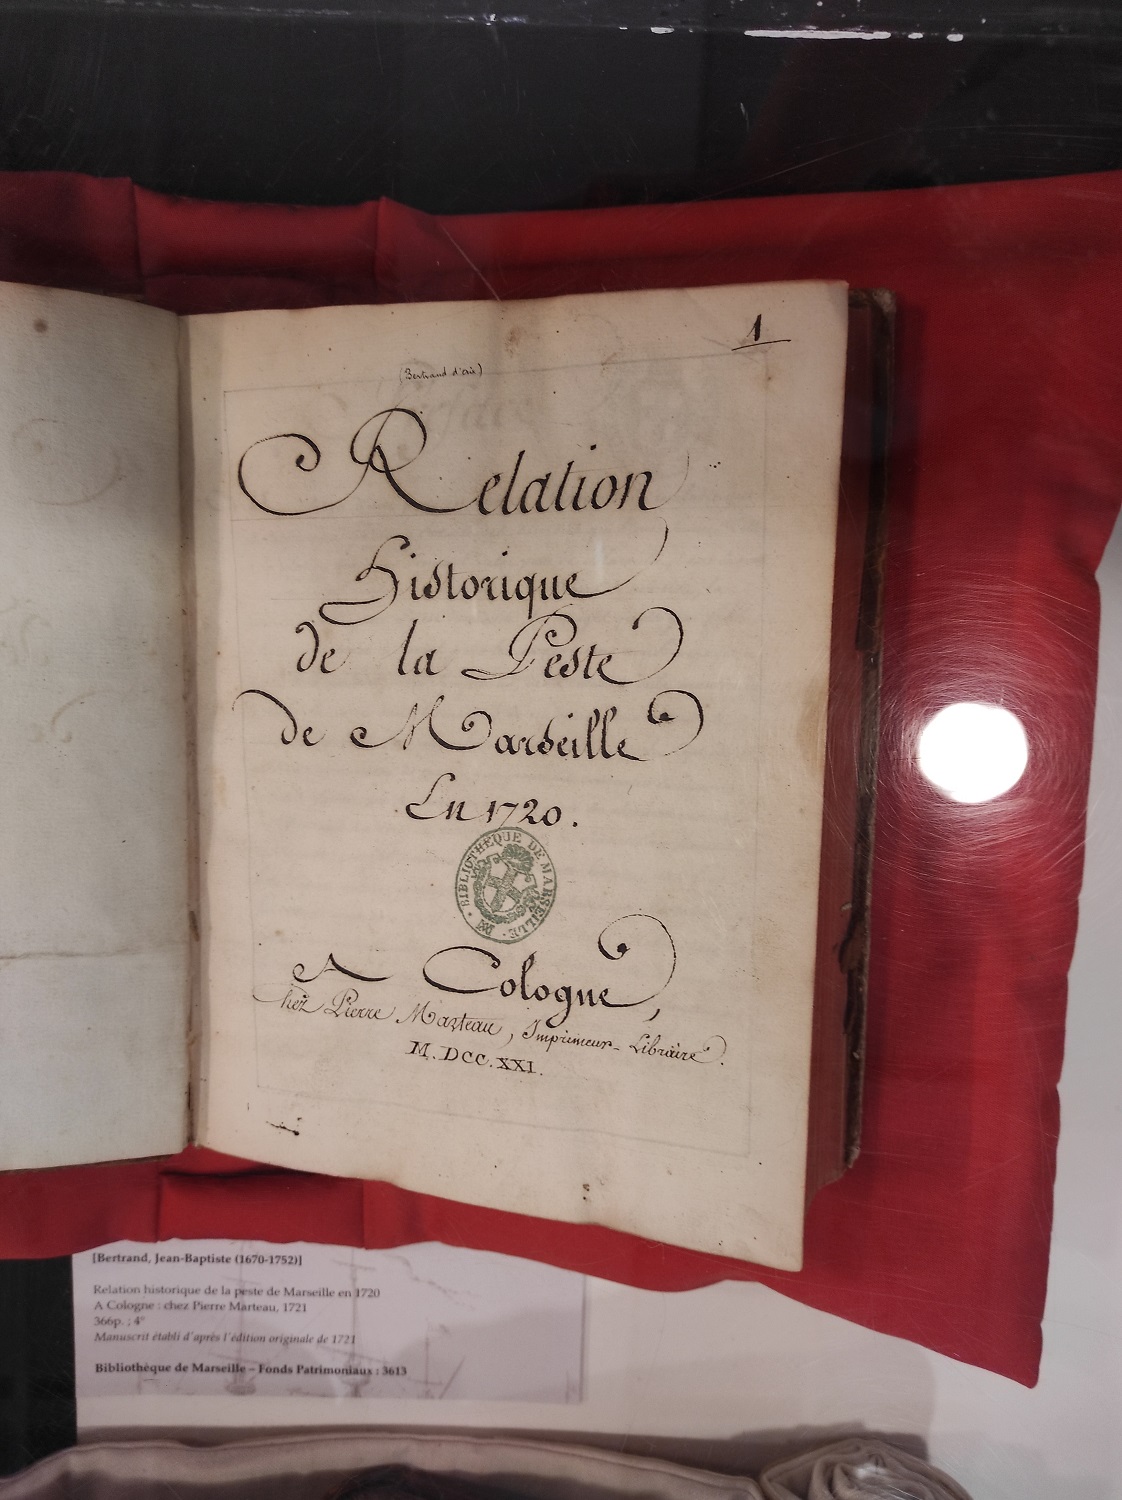 1
Relation
Historique
de la Peste
de Marseille
En 1720.
BIBLIOTHEQUE DE MARSEILLE
A Cologne,
chez Pierre Marteau, Imprimeur-Libraire.
M.DCC.XXI.
[Bertrand, Jean-Baptiste (1670-1752)]
Relation historique de la peste de Marseille en 1720
A Cologne : chez Pierre Marteau, 1721
366p. ; 4°
Manuscrit établi d'après l'édition originale de 1721
Bibliothèque de Marseille – Fonds Patrimoniaux : 3613